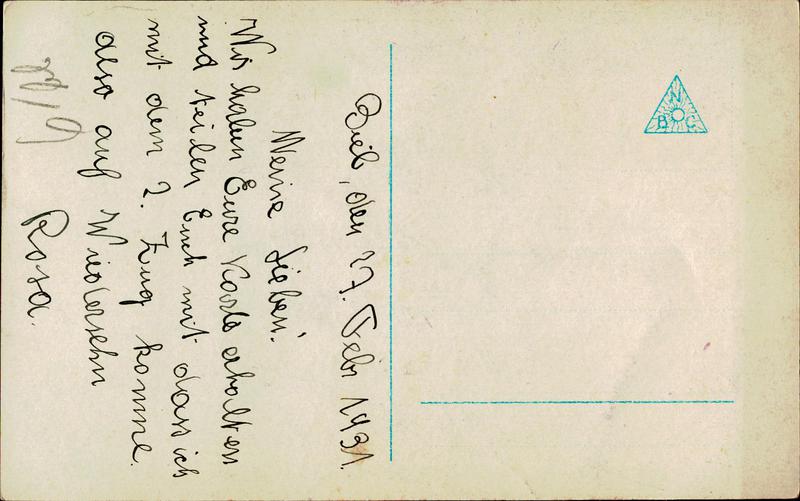 Biel, den 27. Febr 1931.
Meine Lieben!
Wir haben Eure Karte erhalten
und teilen Euch mit dass ich
mit dem 2. Zug komme.
also auf Wiedersehn
Rosa.
N
B C